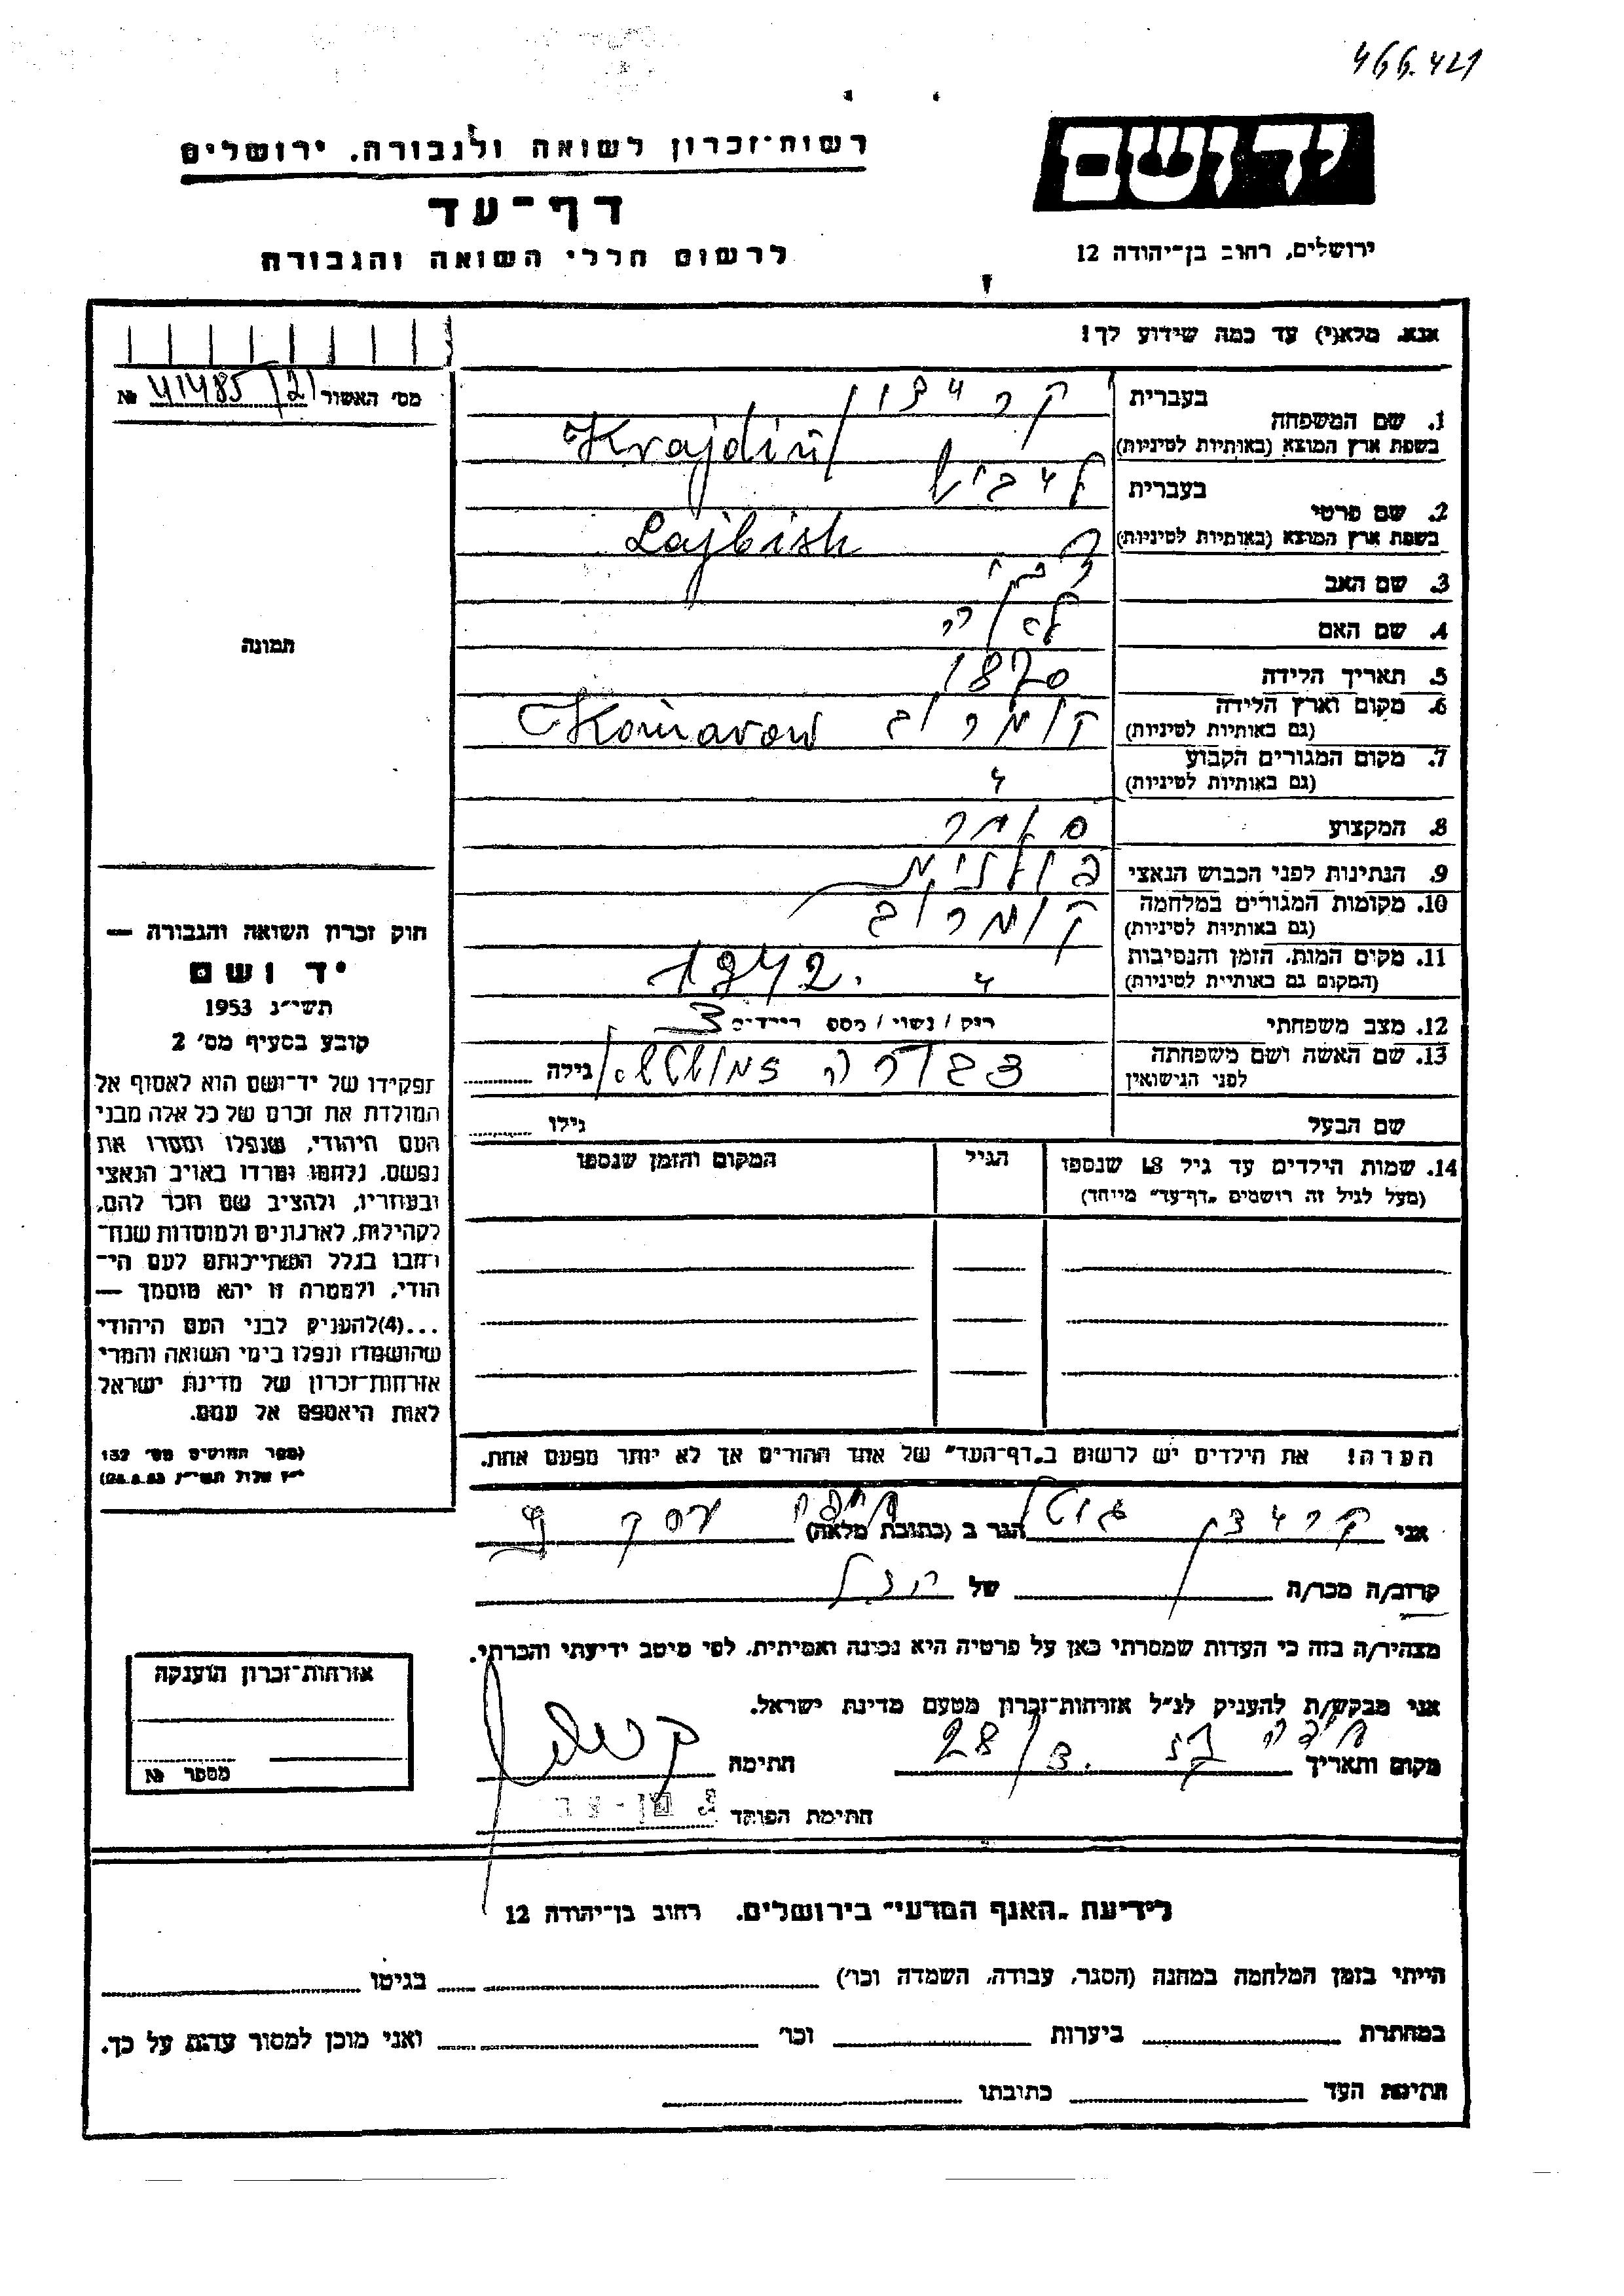 466.421
רשות־זכרון לשואה ולגבורה, ירושלים
יד ושם
דף־עד
ירושלים, רחוב בן־יהודה 12
לרשום חללי השואה והגבורה
אנא, מלא(י) עד כמה שידוע לך!
מס׳ האשור 41485/21 №
1. שם המשפחה
בעברית
בשפת ארץ המוצא (באותיות לטיניות) Krajdin
2. שם פרטי
בעברית לייביש
בשפת ארץ המוצא (באותיות לטיניות) Lajbish
3. שם האב
4. שם האם
5. תאריך הלידה 1870
6. מקום וארץ הלידה קומרוב Komarow
(גם באותיות לטיניות)
7. מקום המגורים הקבוע
(גם באותיות לטיניות) "
8. המקצוע סוחר
9. הנתינות לפני הכבוש הנאצי פולנית
10. מקומות המגורים במלחמה קומרוב
(גם באותיות לטיניות)
11. מקום המות, הזמן והנסיבות " 1942.
(המקום גם באותיות לטיניות)
12. מצב משפחתי רוק / נשוי / מספ׳ הילדים 3
13. שם האשה ושם משפחתה
לפני הנישואין
גילה
שם הבעל
גילו
14. שמות הילדים עד גיל 18 שנספו
(מעל לגיל זה רושמים „דף־עד״ מייחד)
הגיל
המקום והזמן שנספו
הערה! את הילדים יש לרשום ב„דף־העד״ של אחד ההורים אך לא יותר מפעם אחת.
תמונה
חוק זכרון השואה והגבורה —
יד ושם
תשי״ג 1953
קובע בסעיף מס׳ 2
תפקידו של יד־ושם הוא לאסוף אל
המולדת את זכרם של כל אלה מבני
העם היהודי, שנפלו ומסרו את
נפשם, נלחמו ומרדו באויב הנאצי
ובעוזריו, ולהציב שם וזכר להם,
לקהילות, לארגונים ולמוסדות שנח־
רחבו בגלל השתייכותם לעם הי־
הודי, ולמטרה זו יהא מוסמך —
...(4)להעניק לבני העם היהודי
שהושמדו ונפלו בימי השואה והמרי
אזרחות־זכרון של מדינת ישראל
לאות היאספם אל עמם.
(ספר החוקים מס׳ 132
י״ז אלול תשי״ג 28.8.53)
אני הגר ב (כתובת מלאה) חיפה
קרוב/ה מכר/ה של
מצהיר/ה בזה כי העדות שמסרתי כאן על פרטיה היא נכונה ואמיתית, לפי מיטב ידיעתי והכרתי.
אני מבקש/ת להעניק לנ״ל אזרחות־זכרון מטעם מדינת ישראל.
מקום ותאריך חיפה 28/3.
חתימה
חתימת הפוקד
אזרחות־זכרון הוענקה
מספר №
לידיעת „האגף המדעי״ בירושלים, רחוב בן־יהודה 12
הייתי בזמן המלחמה במחנה (הסגר, עבודה, השמדה וכו׳) בגיטו
במחתרת ביערות וכו׳ ואני מוכן למסור עדות על כך.
חתימת העד כתובתו